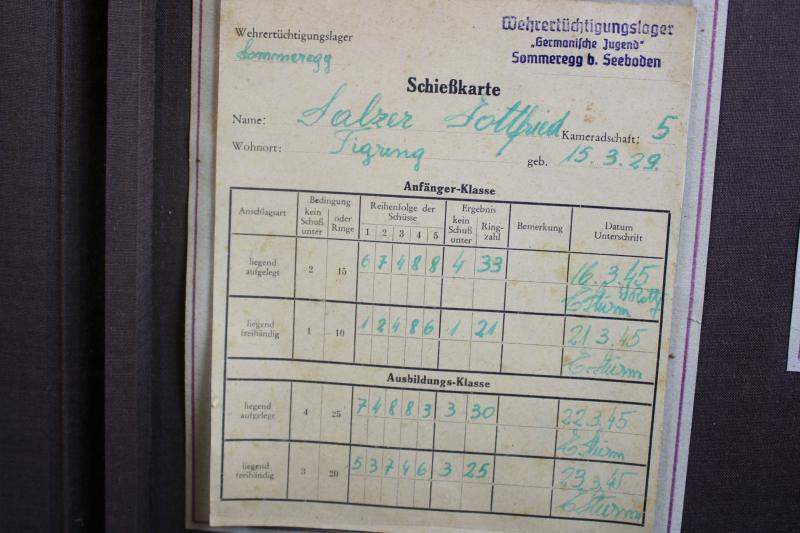 Wehrertüchtigungslager
Sommeregg
Wehrertüchtigungslager
„Germanische Jugend"
Sommeregg b. Seeboden
Schießkarte
Name: Salzer Gottfried Kameradschaft: 5
Wohnort: Tigring geb. 15.3.29.
Anfänger-Klasse
Anschlagsart Bedingung kein Schuß unter oder Ringe Reihenfolge der Schüsse 1 2 3 4 5 Ergebnis kein Schuß unter Ringzahl Bemerkung Datum Unterschrift
liegend aufgelegt 2 15 6 7 4 8 8 4 33 16.3.45
E. Sturm
liegend freihändig 1 10 1 2 4 8 6 1 21 21.3.45
E. Sturm
Ausbildungs-Klasse
liegend aufgelegt 4 25 7 4 8 8 3 3 30 22.3.45
E. Sturm
liegend freihändig 3 20 5 3 7 4 6 3 25 23.3.45
E. Sturm